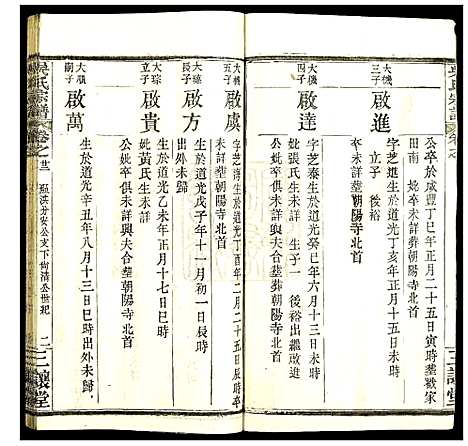 吳氏宗譜
卷之
三讓堂
公卒於咸豐丁巳年正月二十五日寅時塟戴家
田南 妣卒未詳葬朝陽寺北首
大機三子
啟進
字芝進生於道光丁亥年正月十五日未時
立子 後裕
卒未詳塟朝陽寺北首
大機四子
啟達
字芝泰生於道光癸巳年六月十三日未時
妣張氏生未詳 生子一 後裕出繼啟進
公妣卒俱未詳與夫合塟葬朝陽寺北首
大機五子
啟虞
字芝海生於道光丁酉年二月五日辰時卒
未詳塟朝陽寺北首
大璂長子
啟方
生於道光戊子年十一月初一日辰時
出外未歸
大琮次子
啟貴
生於道光乙未年正月十七日巳時
妣黃氏生未詳
公妣卒俱未詳與夫合塟朝陽寺北首
大順子
啟萬
生於道光辛丑年八月十三日巳時出外未歸
吳氏宗譜
卷之廿二
洪分安公支下尙清公世紀
二
三讓堂